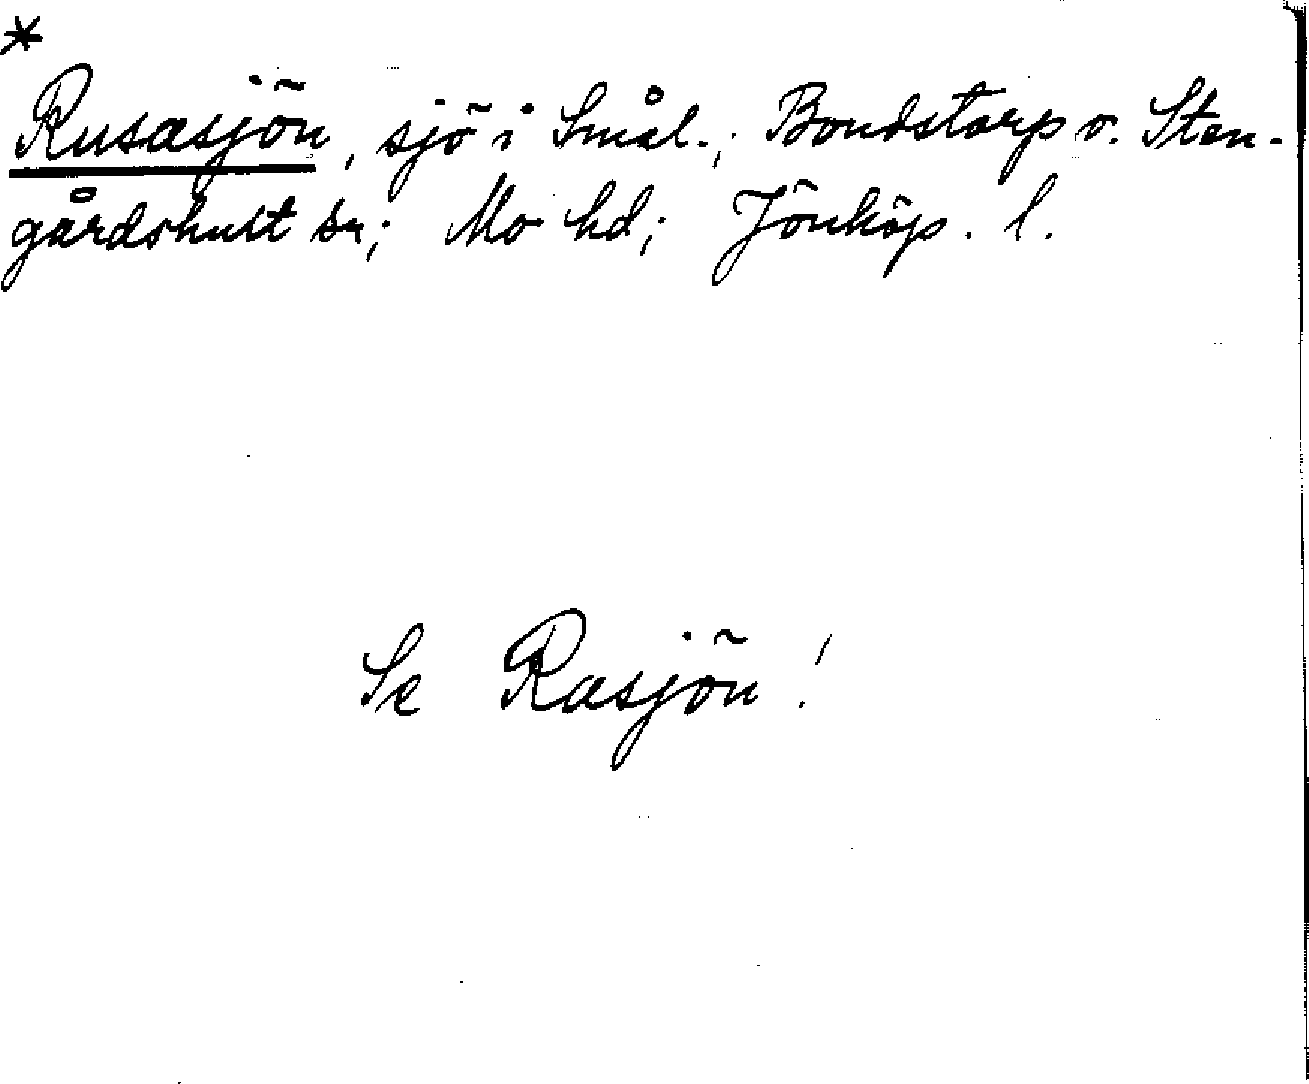 *
Rusasjön, sjö i Smål.; Bondstorp o. Sten-
gårdshult sn; Mo hd; Jönköp. l.
Se Rasjön!